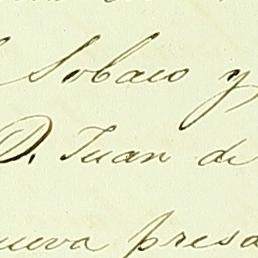 Sobaco y
D. Juan de
nueva presa